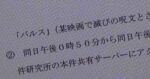 「バルス」(某映画で滅びの呪文とさ
② 同日午後0時50分から同日午後
件研究所の本件共有サーバーにア